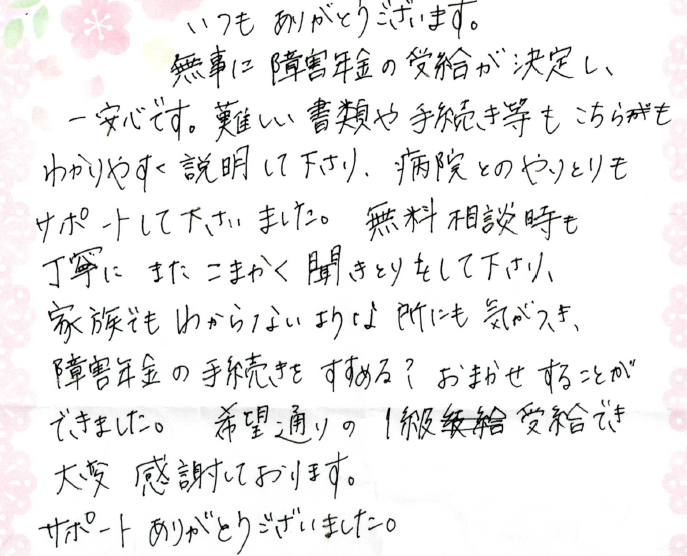 いつも ありがとうございます。
無事に 障害年金の受給が決定し、
一安心です。難しい書類や手続き等もこちらも
わかりやすく説明して下さり、病院とのやりとりも
サポートして下さいました。 無料相談時も
丁寧に またこまかく聞きとりをして下さり、
家族でもわからないような所にも気がつき、
障害年金の手続きをすすめる？おまかせすることが
できました。 希望通りの1級 受給でき
大変 感謝しております。
サポートありがとうございました。